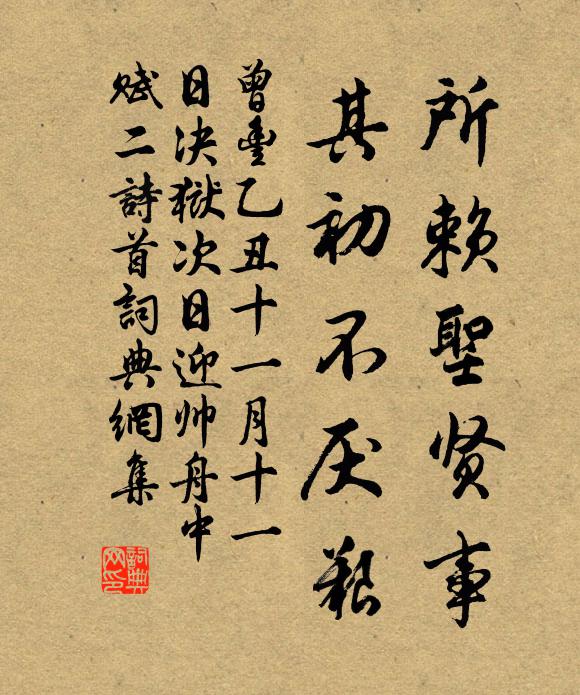 所赖聖贤事
其初不厌艱
曾豐乙丑十一月十一
日决獄次日迎帅舟中
赋二詩首詞典網集
詞典网印